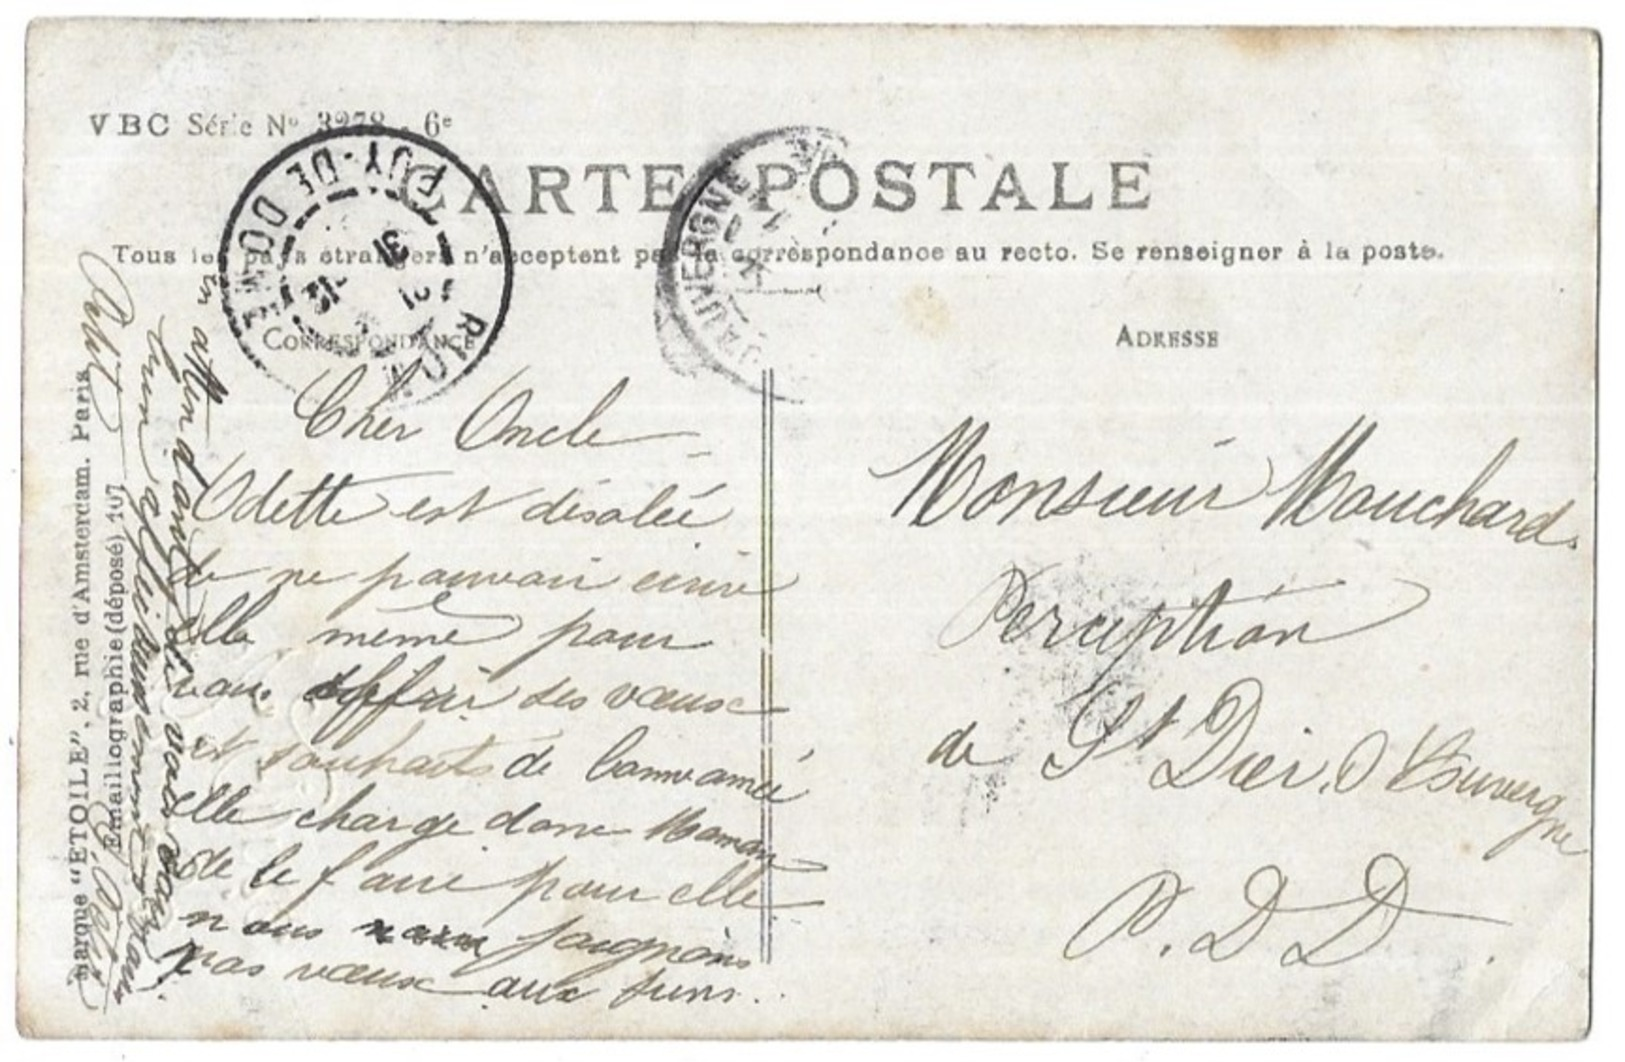 VBC Série No 3278 - 6e
CARTE POSTALE
Tous les pays étrangers n'acceptent pas la correspondance au recto. Se renseigner à la poste.
CORRESPONDANCE
ADRESSE
RIOM
PUY-DE-DOME
31
12
D'AUVERGNE
Cher Oncle
Odette est désolée
de ne pouvoir écrire
elle même pour
vous offrir ses vœux
et souhaits de bonne année
elle charge donc Maman
de le faire pour elle
nous joignons
nos vœux aux siens.
En attendant de vous voir
bien affectueusement
Petit
Monsieur Mouchard
Perception
de St Dier. d'Auvergne
P. D D.
Marque "ETOILE", 2, rue d'Amsterdam. Paris
Emaillographie (déposé) 107